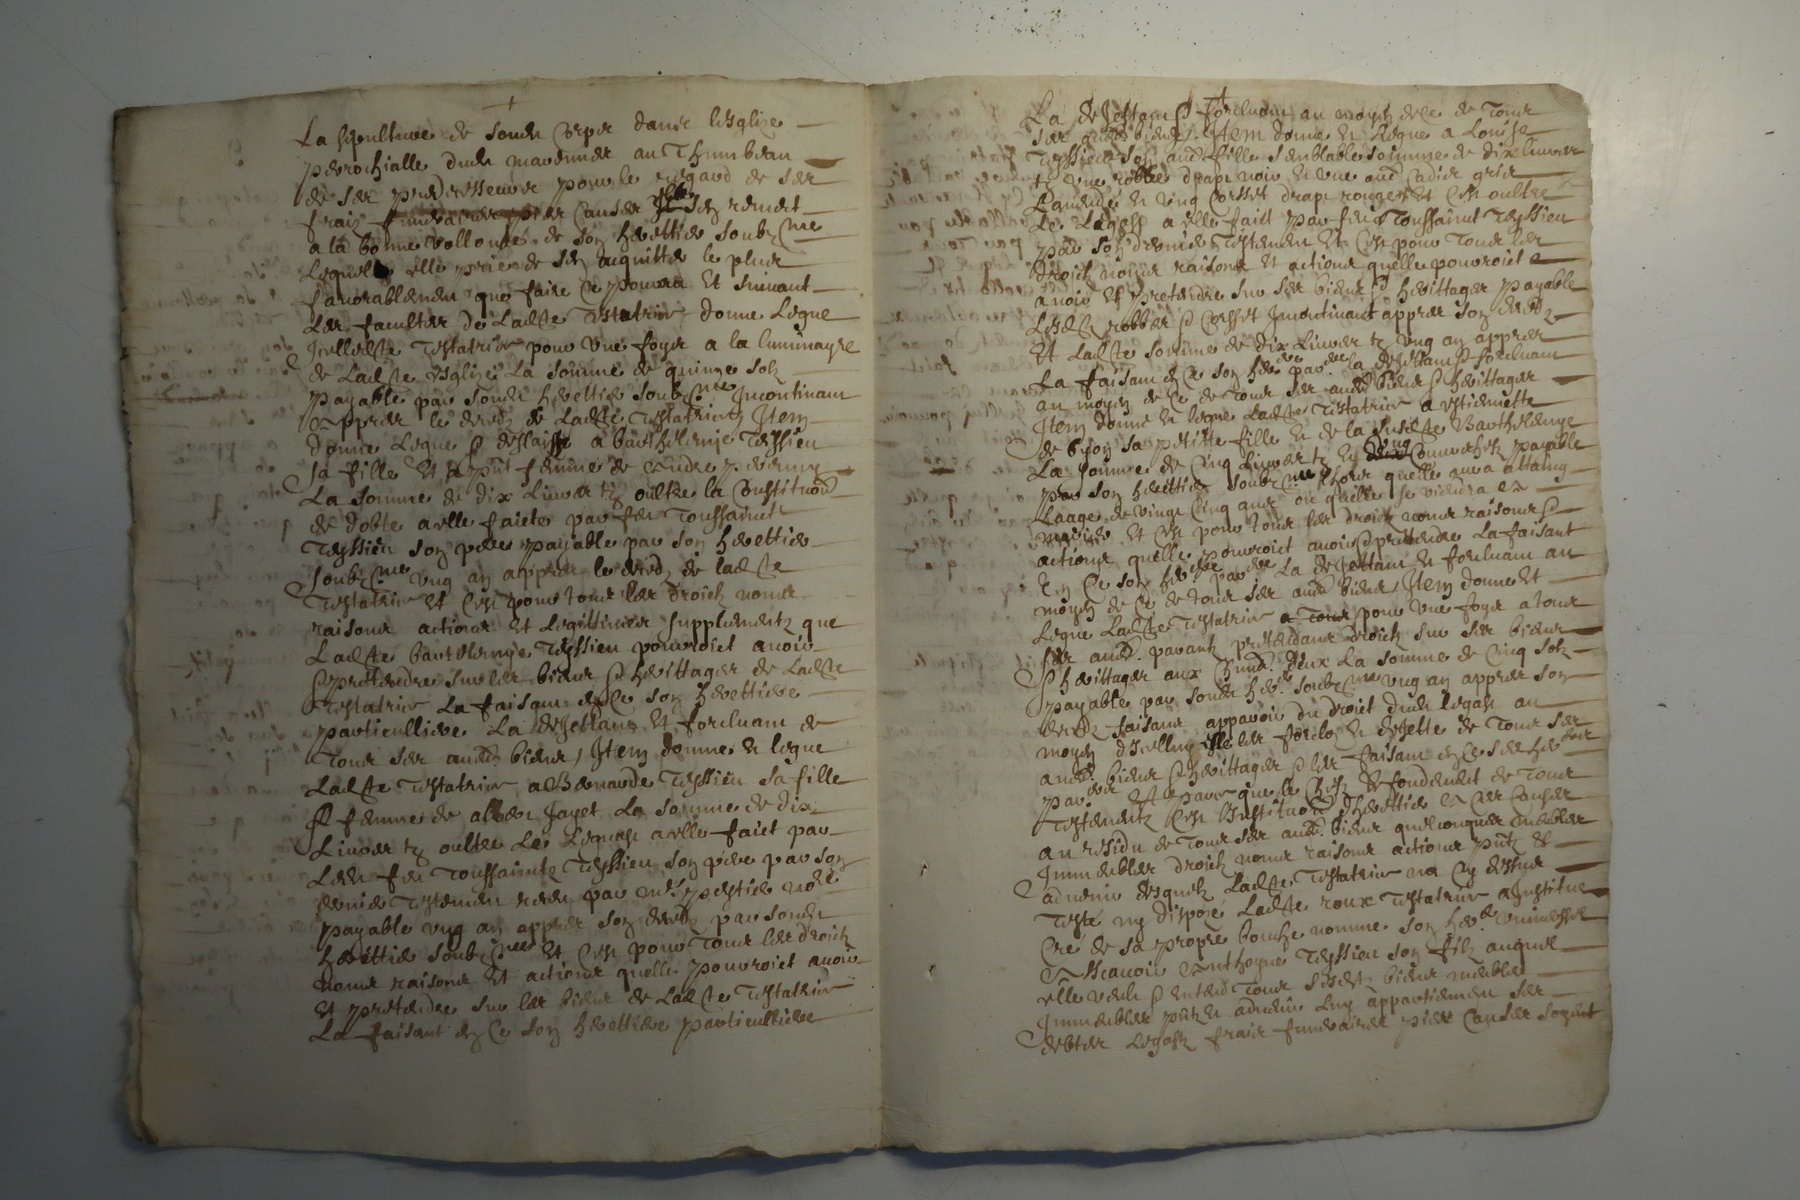 La sepulture de sondit corps dans lesglize
perrochialle dudit mardunier au Thumbeau
de ses predecesseurs pour le regard de ses
frais funeraires pies causes Elle sen remet
a la bonne vollonte de son herettier soubz nme
Lequel elle prie de sen acquitter le plus
favorablement que faire ce pourra Et suivant
Les facultes de Ladite Testatrix donne Legue
Icelledite Testatrix pour une foys a la luminayre
de Ladite esglize La somme de quinze solz
payable par sondit herettier soubz nme Incontinant
appres le deces de Ladite Testatrix Item
donne Legue & dellaisse a Barthelemye Teyssieu
sa fille Et a pnt femme de Andre
La somme de dix Livres tz oultre la Constituon
de dotte a elle faicte par feu Toussainct
Teyssieu son pere payable par son herettier
soubz nme ung an appres le deces de ladite
Testatrix Et cest pour tous les droictz noms
raisons actions Et Legittimes supplementz que
Ladite Barthelemye Teyssieu pourroict avoir
& prethendre sur les biens & herittages de Ladite
Testatrix La faisant en Ce son herettiere
particulliere La dejettant Et forcluant de
Tous ses aultres biens / Item donne & legue
Ladite Testatrix a Bernarde Teyssieu sa fille
& femme de Jayet La somme de dix
Livres tz oultre Le Legat a elle faict par
Ledit feu Toussainctz Teyssieu son pere par son
dernier Testament receu par Me nore
payable ung an appres son deces par sondit
herettier soubz nme Et Cest pour Tous les droictz
noms raisons Et actions quelle pourroict avoir
Et prethendre sur les biens de Ladite Testatrix
La faisant en Ce son herettiere particulliere
La dejettant & forcluant au moyen de Ce de Tous
ses aultres biens / Item donne & Legue a Louise
Teyssieu son aultre fille semblable somme de dix livres
tz une robbe drapt noir & une gris
& ung Corsset drapt rouge Et Ce oultre
Le Legatz a elle faict par feu Toussainct Teyssieu
par son dernier Testement Et Cest pour Tous les
droictz noms raisons Et actions quelle pourroict
avoir Et prethendre sur ses biens & herittages payable
Lesdites robbes & Corsset Incontinant appres son deces
Et Ladite somme de dix Livres tz ung an appres
La faisant en Ce son here par re La dejettant & forcluant
au moyen de Ce de Tous ses aultres biens & herittages
Item donne & legue Ladite Testatrix a Estiennette
de Bijon sa petitte fille & de la susdite Barthelemye
La somme de Cinq Livres tz Et ung Couvrechetz payable
par son herettier soubz nme Lhors quelle aura attaing
Laage de vingt Cinq ans ou quelle se viendra a
marier Et Cest pour tous les droictz noms raisons &
actions quelle pourroict avoir & prethendre La faisant
En Ce son here par re La dejettant & forcluant au
moyen de Ce de tous ses aultres biens / Item donne Et
Legue Ladite Testatrix pour une foys a tous
ses aultres parantz prethendans droictz sur ses biens
& herittages aux Chung deux La somme de Cinq solz
payable par sondit here soubz nme ung an appres son
deces faisant apparoir du droict dudit legatz au
moyen dicelluy Elle les forclos & dejette de Tous ses
aultres biens & herittages & les faisant en Ce ses heres
par res Et parce que le Chef & fondement de Tous
Testementz Cest Institution dherettier a Ces Causes
au residu de Tous ses aultres biens quelconques meubles
Immeubles droictz noms raisons actions pntz &
advenir desquelz Ladite Testatrix na Cy dessus
Testé ny dispozé Ladite roux Testatrix a Institué
Cre de sa propre bouche nomme son here universsel
Asscavoir Anthoyne Teyssieu son filz auquel
elle veult & entend Tous sesditz biens meubles
Immeubles pntz & advenir Luy appartiennent ses
debtes Legatz fraix funeraires pies Causes soyent